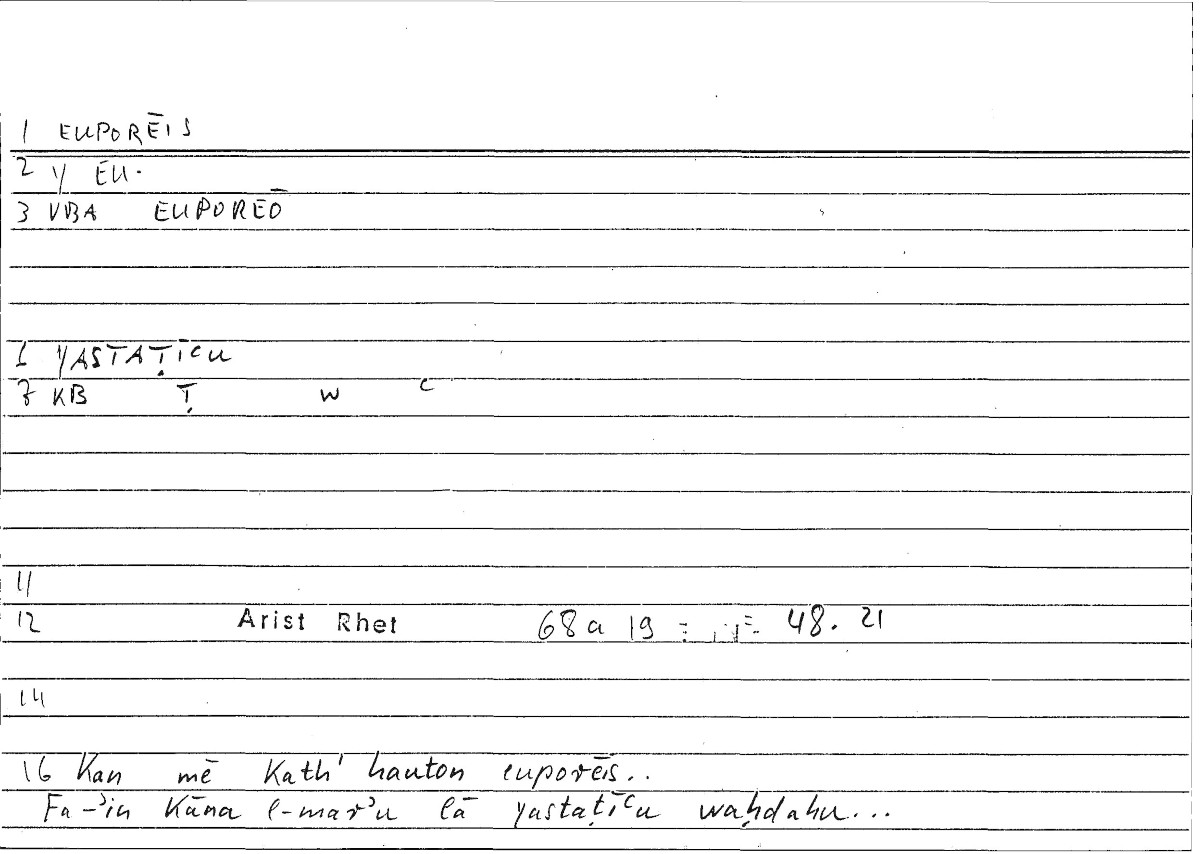 1 EUPORĒIS
2 Y EU·
3 VBA EUPOREŌ
1 YASTAṬĪʿU
7 KB Ṭ W ʿ
11
12 Arist Rhet 68a 19 = 48. 21
14
16 Kan mē Kath' hauton euporēis..
Fa-ʾin Kāna l-marʾu lā yastaṭīʿu waḥdahu...